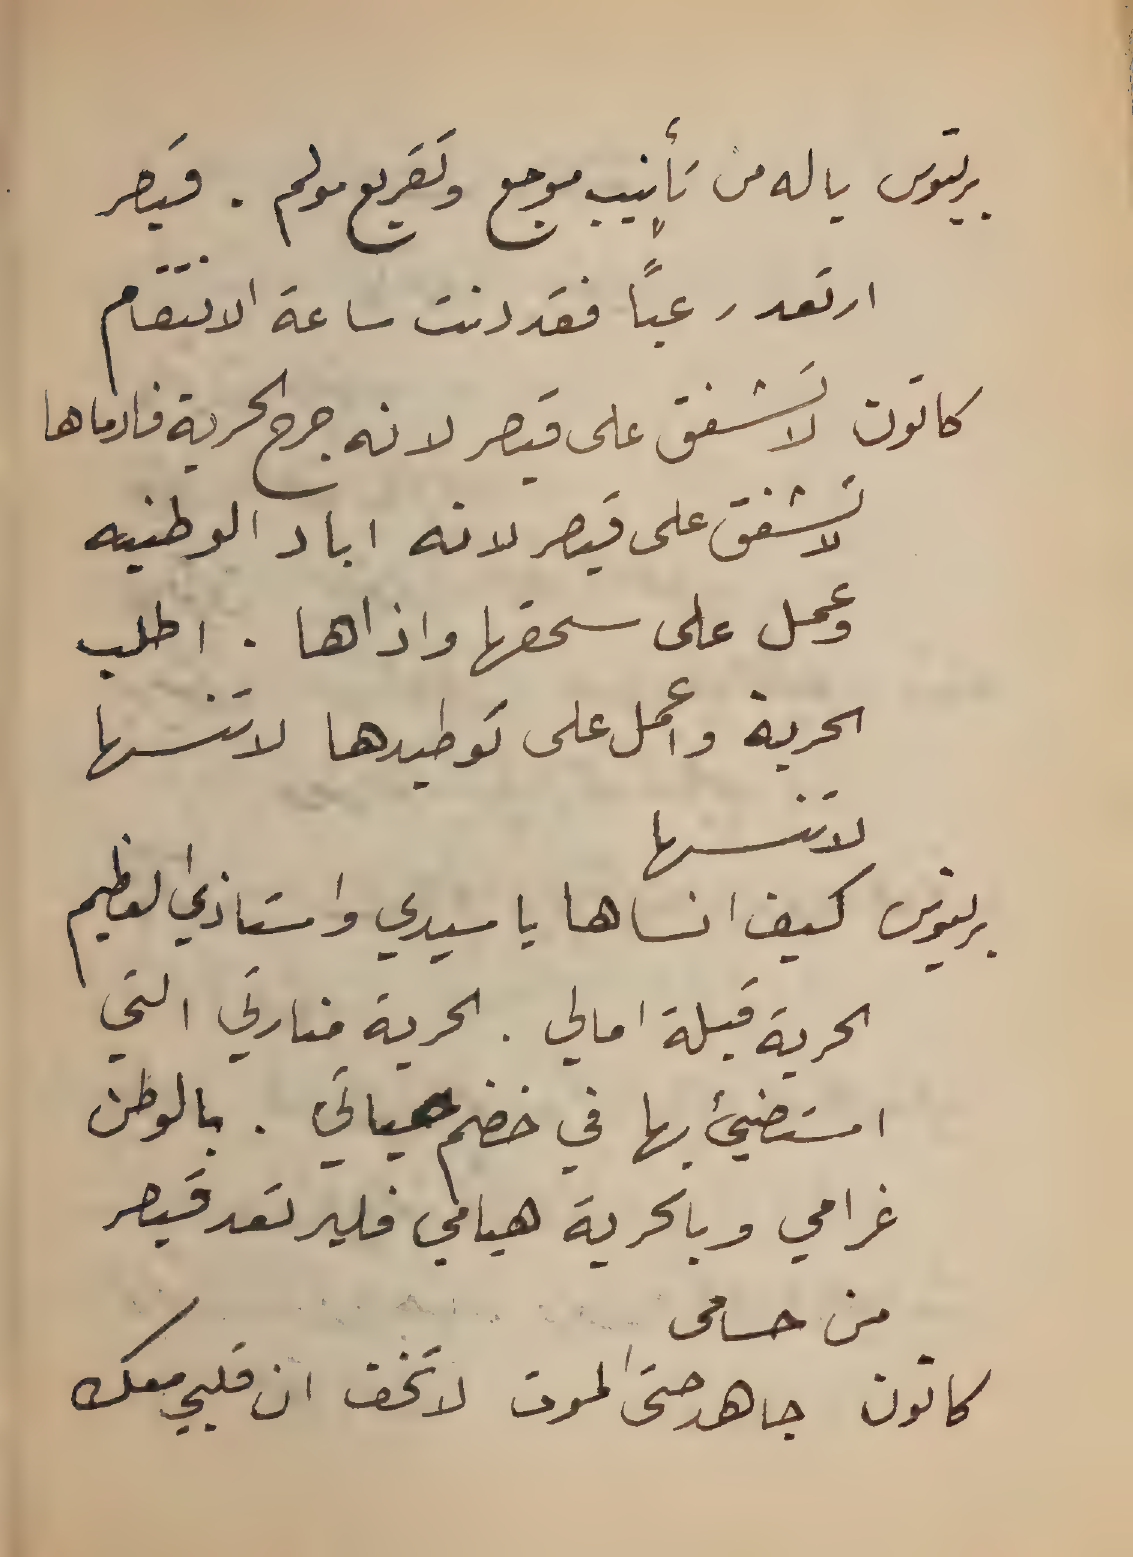 بريتوس ياله من تأنيب موجع وتقريع مولم . قيصر
ارتعد رعبًا فقد دنت ساعة الانتقام
كاتون لا تشفق على قيصر لانه جرح الحرية فادماها
لا تشفق على قيصر لانه اباد الوطنيه
وعمل على سحقها واذاها . اطلب
الحرية واعمل على توطيدها لا تنسها
لا تنسها
بريتوس كيف انساها يا سيدي واستاذي العظيم
الحرية قبلة امالي . الحرية منارتي التي
استضيئ بها في خضم حياتي . بالوطن
غرامي وبالحرية هيامي فليرتعد قيصر
من حسامى
كاتون جاهد حتى الموت لا تخف ان قلبي معك